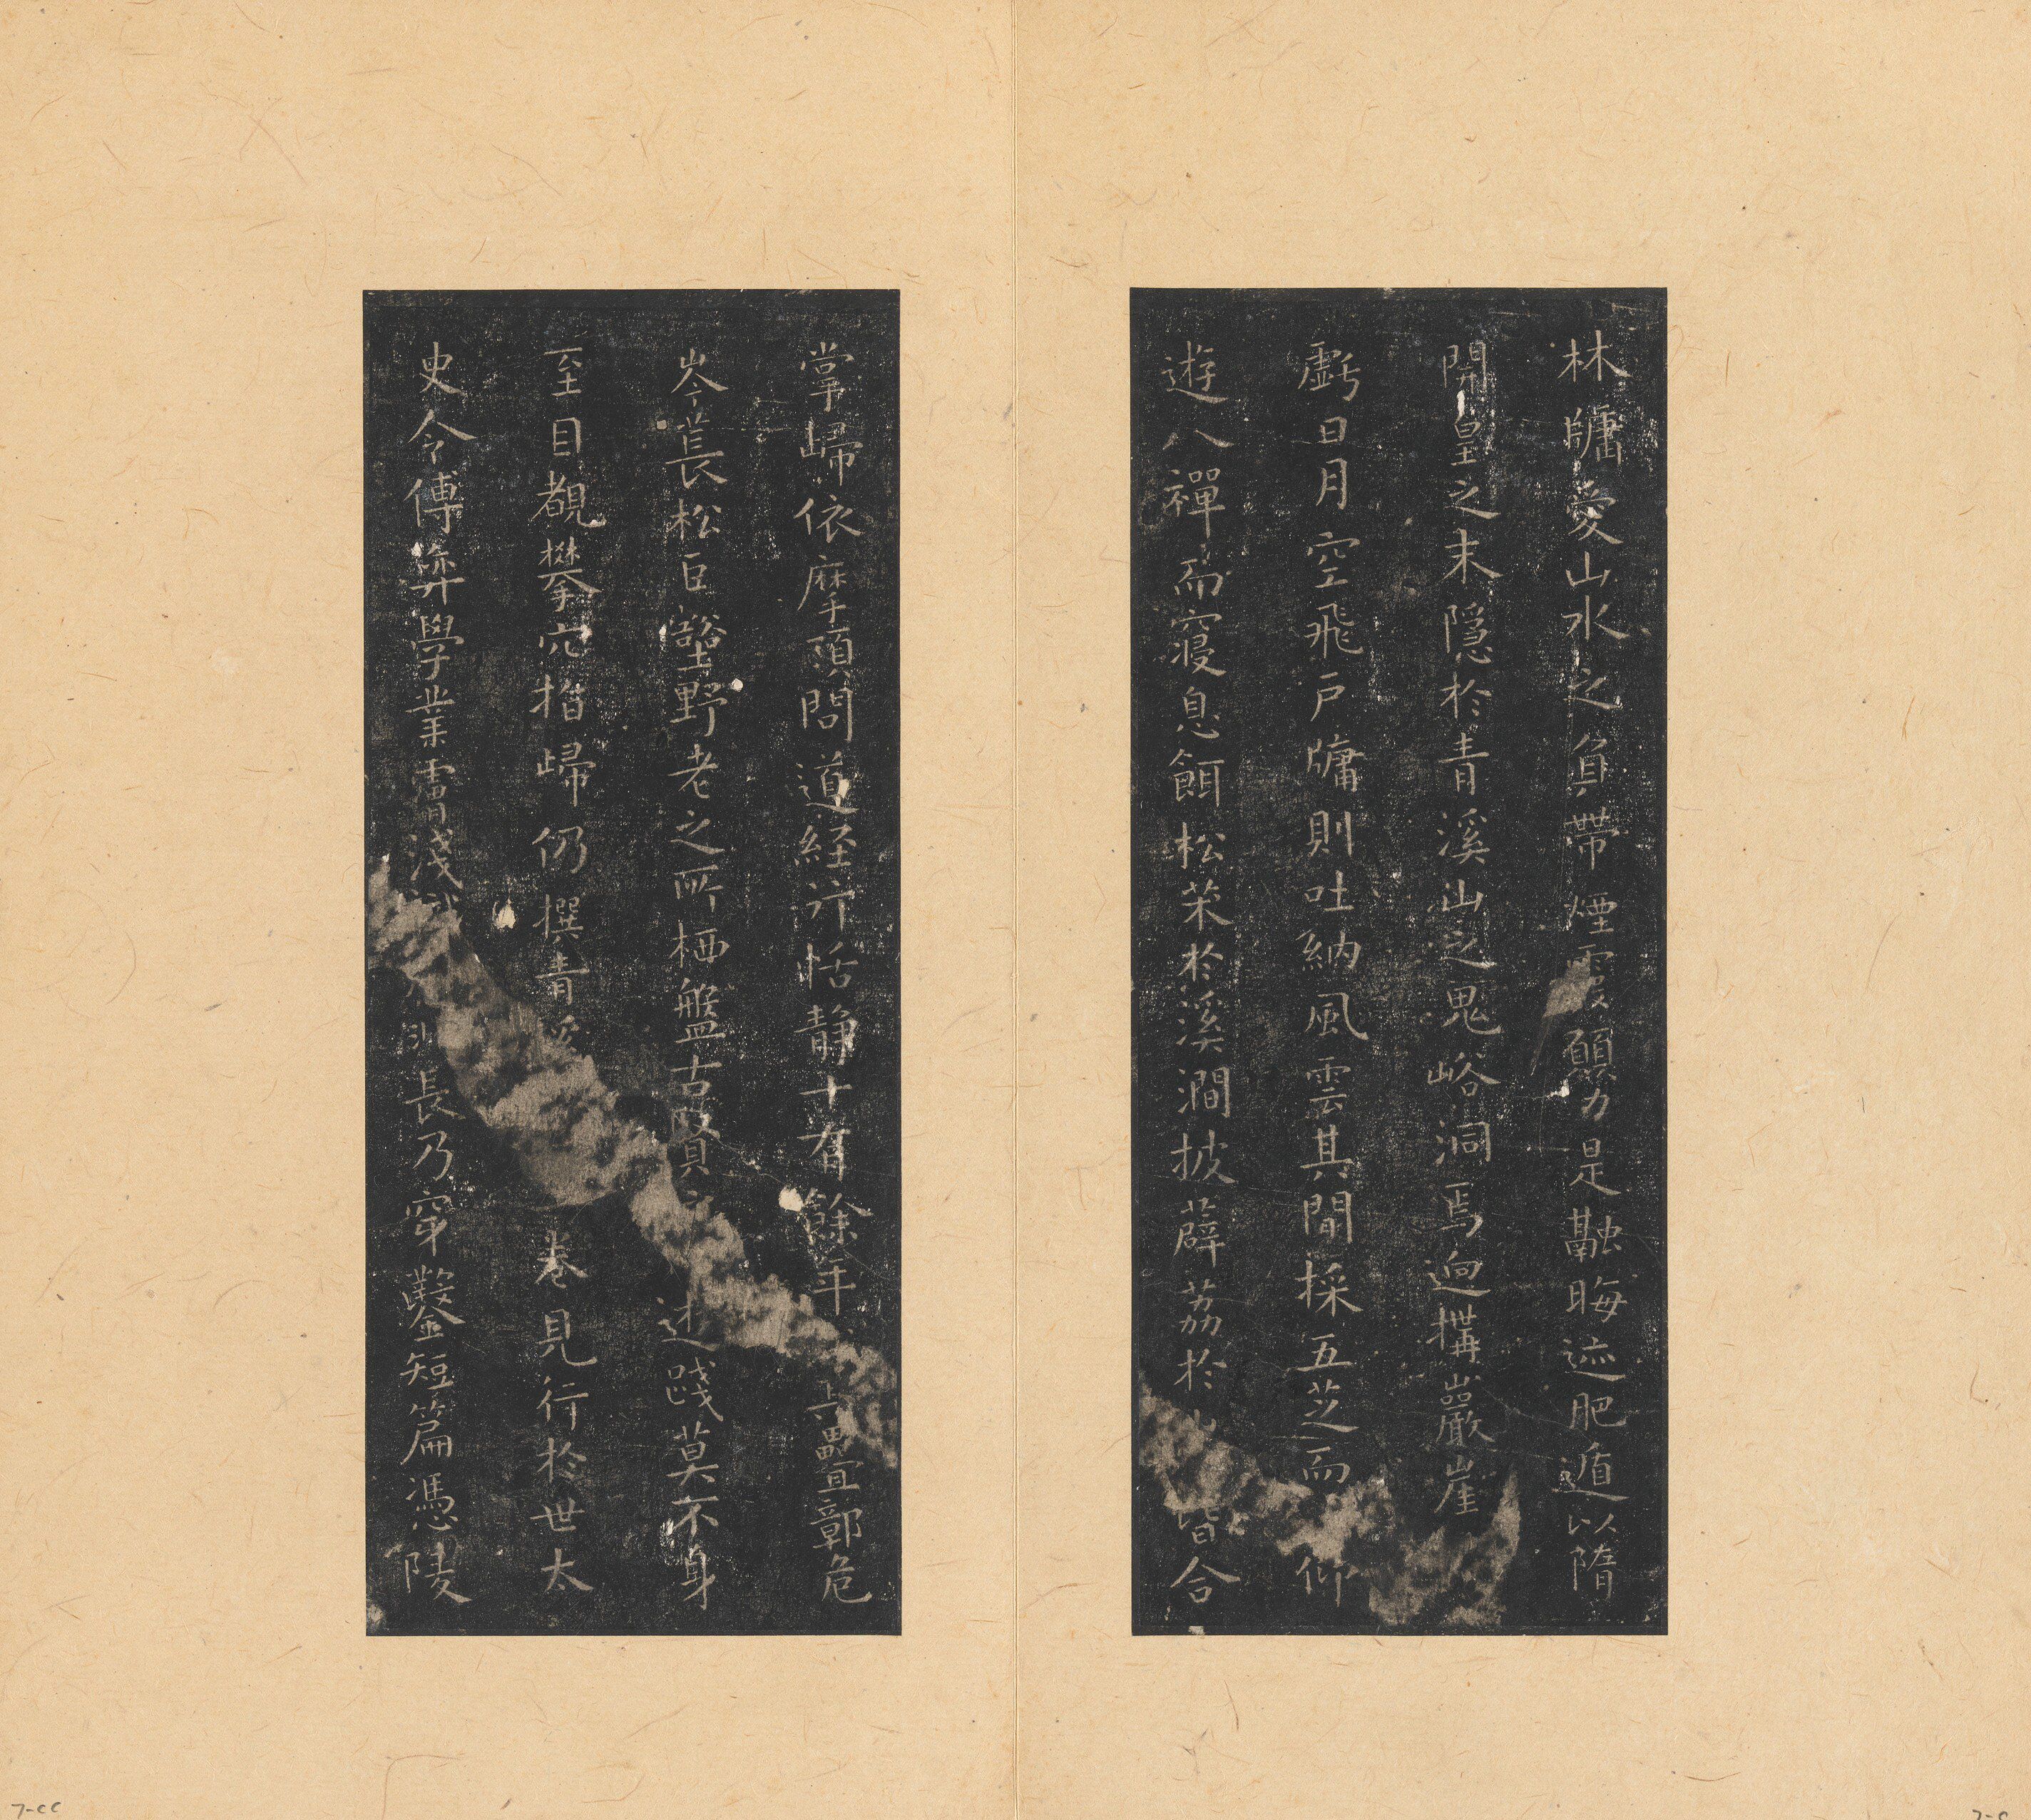 林牗愛山水之負帶煙霞願力是融晦迹肥遁以隋
開皇之末隱於青溪山之鬼峪洞焉逈構巖崖
虧日月空飛戶牗則吐納風雲其間採五芝而仰
遊八禪而寢息餌松茱於溪澗披薜荔於皆合
掌歸依摩頂問道経行恬静十有餘年疊彰危
岑萇松巨壑野老之所栖盤古賢逰踐莫不身
至目覩攀穴指歸仍撰青溪卷見行於世太
史令傅弈學業霄淺長乃穿鑿短篇馮陵
7-CC
7-C